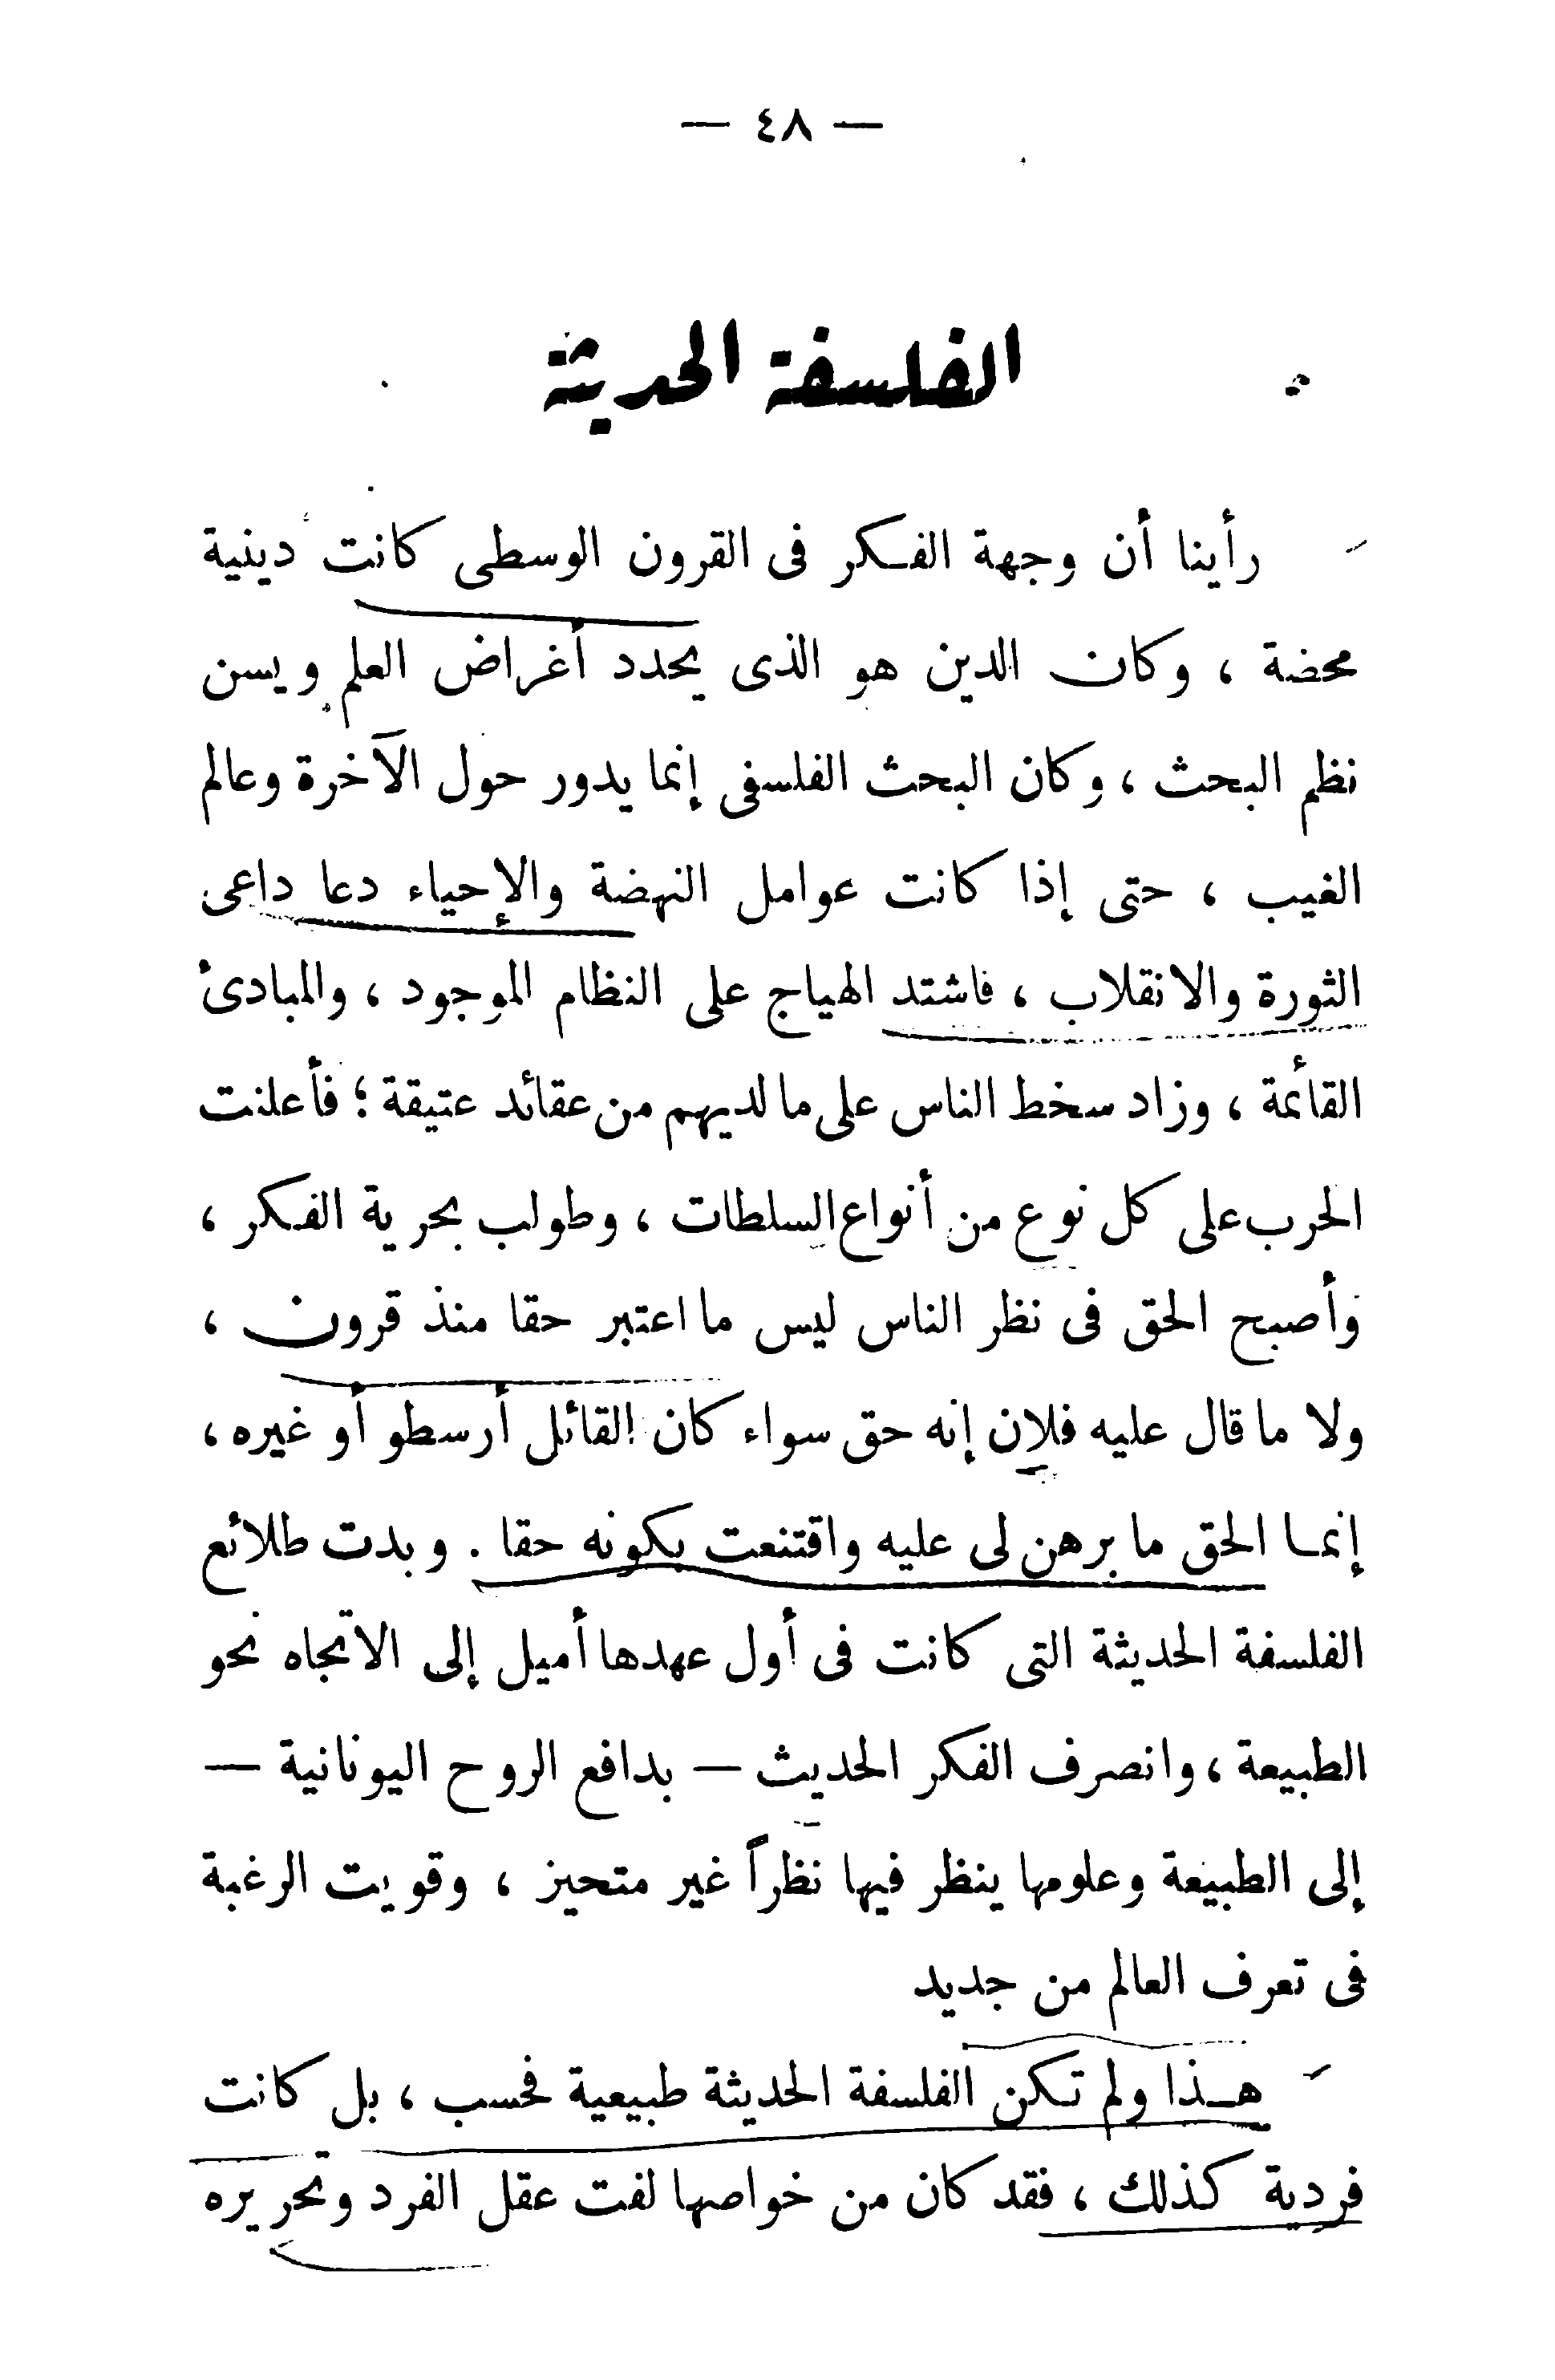 — ٤٨ —
الفلسفة الحديثة
رأينا أن وجهة الفكر فى القرون الوسطى كانت دينية
محضة ، وكان الدين هو الذى يحدد أغراض العلم ويسن
نظم البحث ، وكان البحث الفلسفى إنما يدور حول الآخرة وعالم
الغيب ، حتى إذا كانت عوامل النهضة والإحياء دعا داعى
الثورة والانقلاب ، فاشتد الهياج على النظام الموجود ، والمبادئ
القائمة ، وزاد سخط الناس على ما لديهم من عقائد عتيقة ؛ فأعلنت
الحرب على كل نوع من أنواع السلطات ، وطولب بحرية الفكر ،
وأصبح الحق فى نظر الناس ليس ما اعتبر حقا منذ قرون ،
ولا ما قال عليه فلان إنه حق سواء كان القائل أرسطو أو غيره ،
إنما الحق ما برهن لى عليه واقتنعت بكونه حقا . وبدت طلائع
الفلسفة الحديثة التى كانت فى أول عهدها أميل إلى الاتجاه نحو
الطبيعة ، وانصرف الفكر الحديث — بدافع الروح اليونانية —
إلى الطبيعة وعلومها ينظر فيها نظراً غير متحيز ، وقويت الرغبة
فى تعرف العالم من جديد
هذا ولم تكن الفلسفة الحديثة طبيعية فحسب ، بل كانت
فردية كذلك ، فقد كان من خواصها لفت عقل الفرد وتحريره